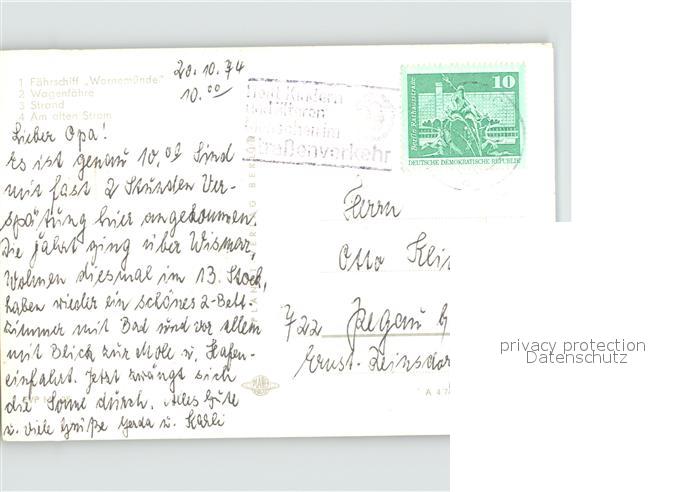 1 Fährschiff „Warnemünde"
2 Wagenfähre
3 Strand
4 Am alten Strom
20.10.74
10.00
Helft Kindern
und Älteren
Menschen im
Straßenverkehr
10
Berlin, Rathausstraße
DEUTSCHE DEMOKRATISCHE REPUBLIK
Lieber Opa!
Es ist genau 10.00 Sind
mit fast 2 Stunden Ver-
spätung hier angekommen.
Die Fahrt ging über Wismar,
Wohnen diesmal im 13. Stock,
haben wieder ein schönes 2-Bett-
zimmer mit Bad und vor allem
mit Blick zur Mole u. Hafen-
einfahrt. Jetzt zwängt sich
die Sonne durch. Alles Gute
u. viele Grüße Gerda u. Karli
Herrn
Otto
722 Pegau
Ernst-Reinsdor
PLANET
A 4
privacy protection
Datenschutz